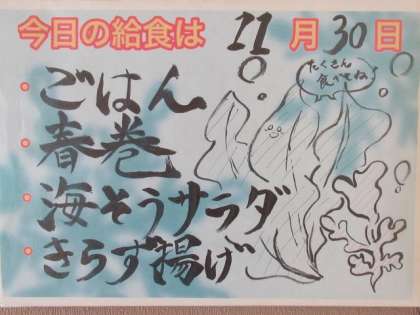 今日の給食は 11月30日
たくさん
食べてね
・ごはん
・春巻
・海そうサラダ
・きらず揚げ